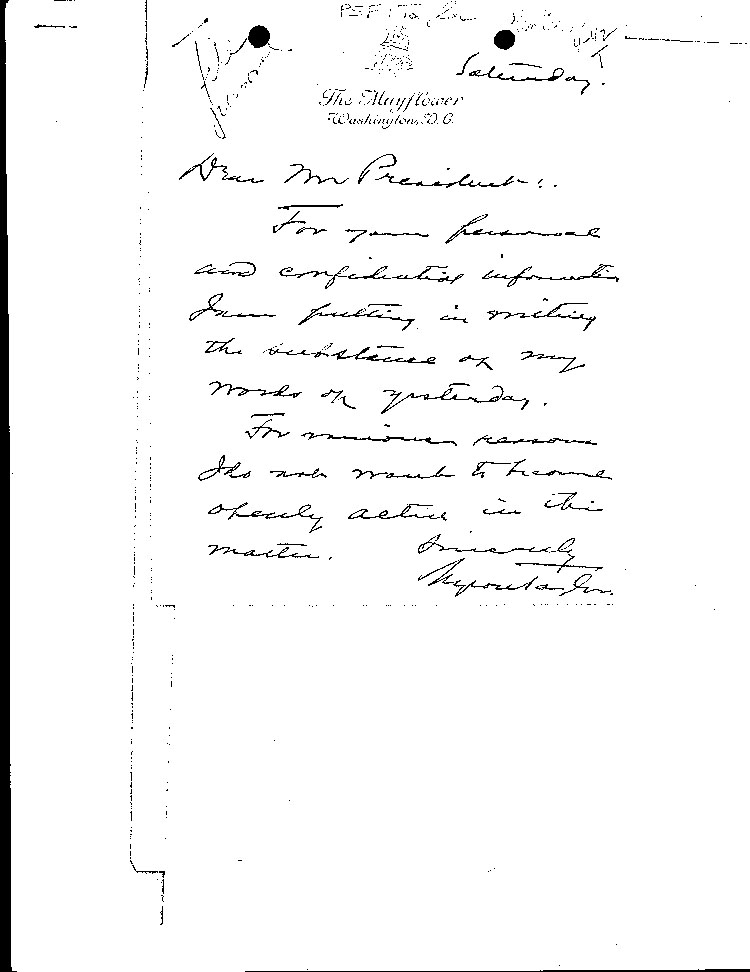 PSF: Taylor
File
personal
Saturday.
The Mayflower
Washington, D.C.
Dear Mr President:
For your personal
and confidential information
I am putting in writing
the substance of my
words of yesterday.
For various reasons
I do not want to become
openly active in this
matter.
Sincerely
Myron Taylor.